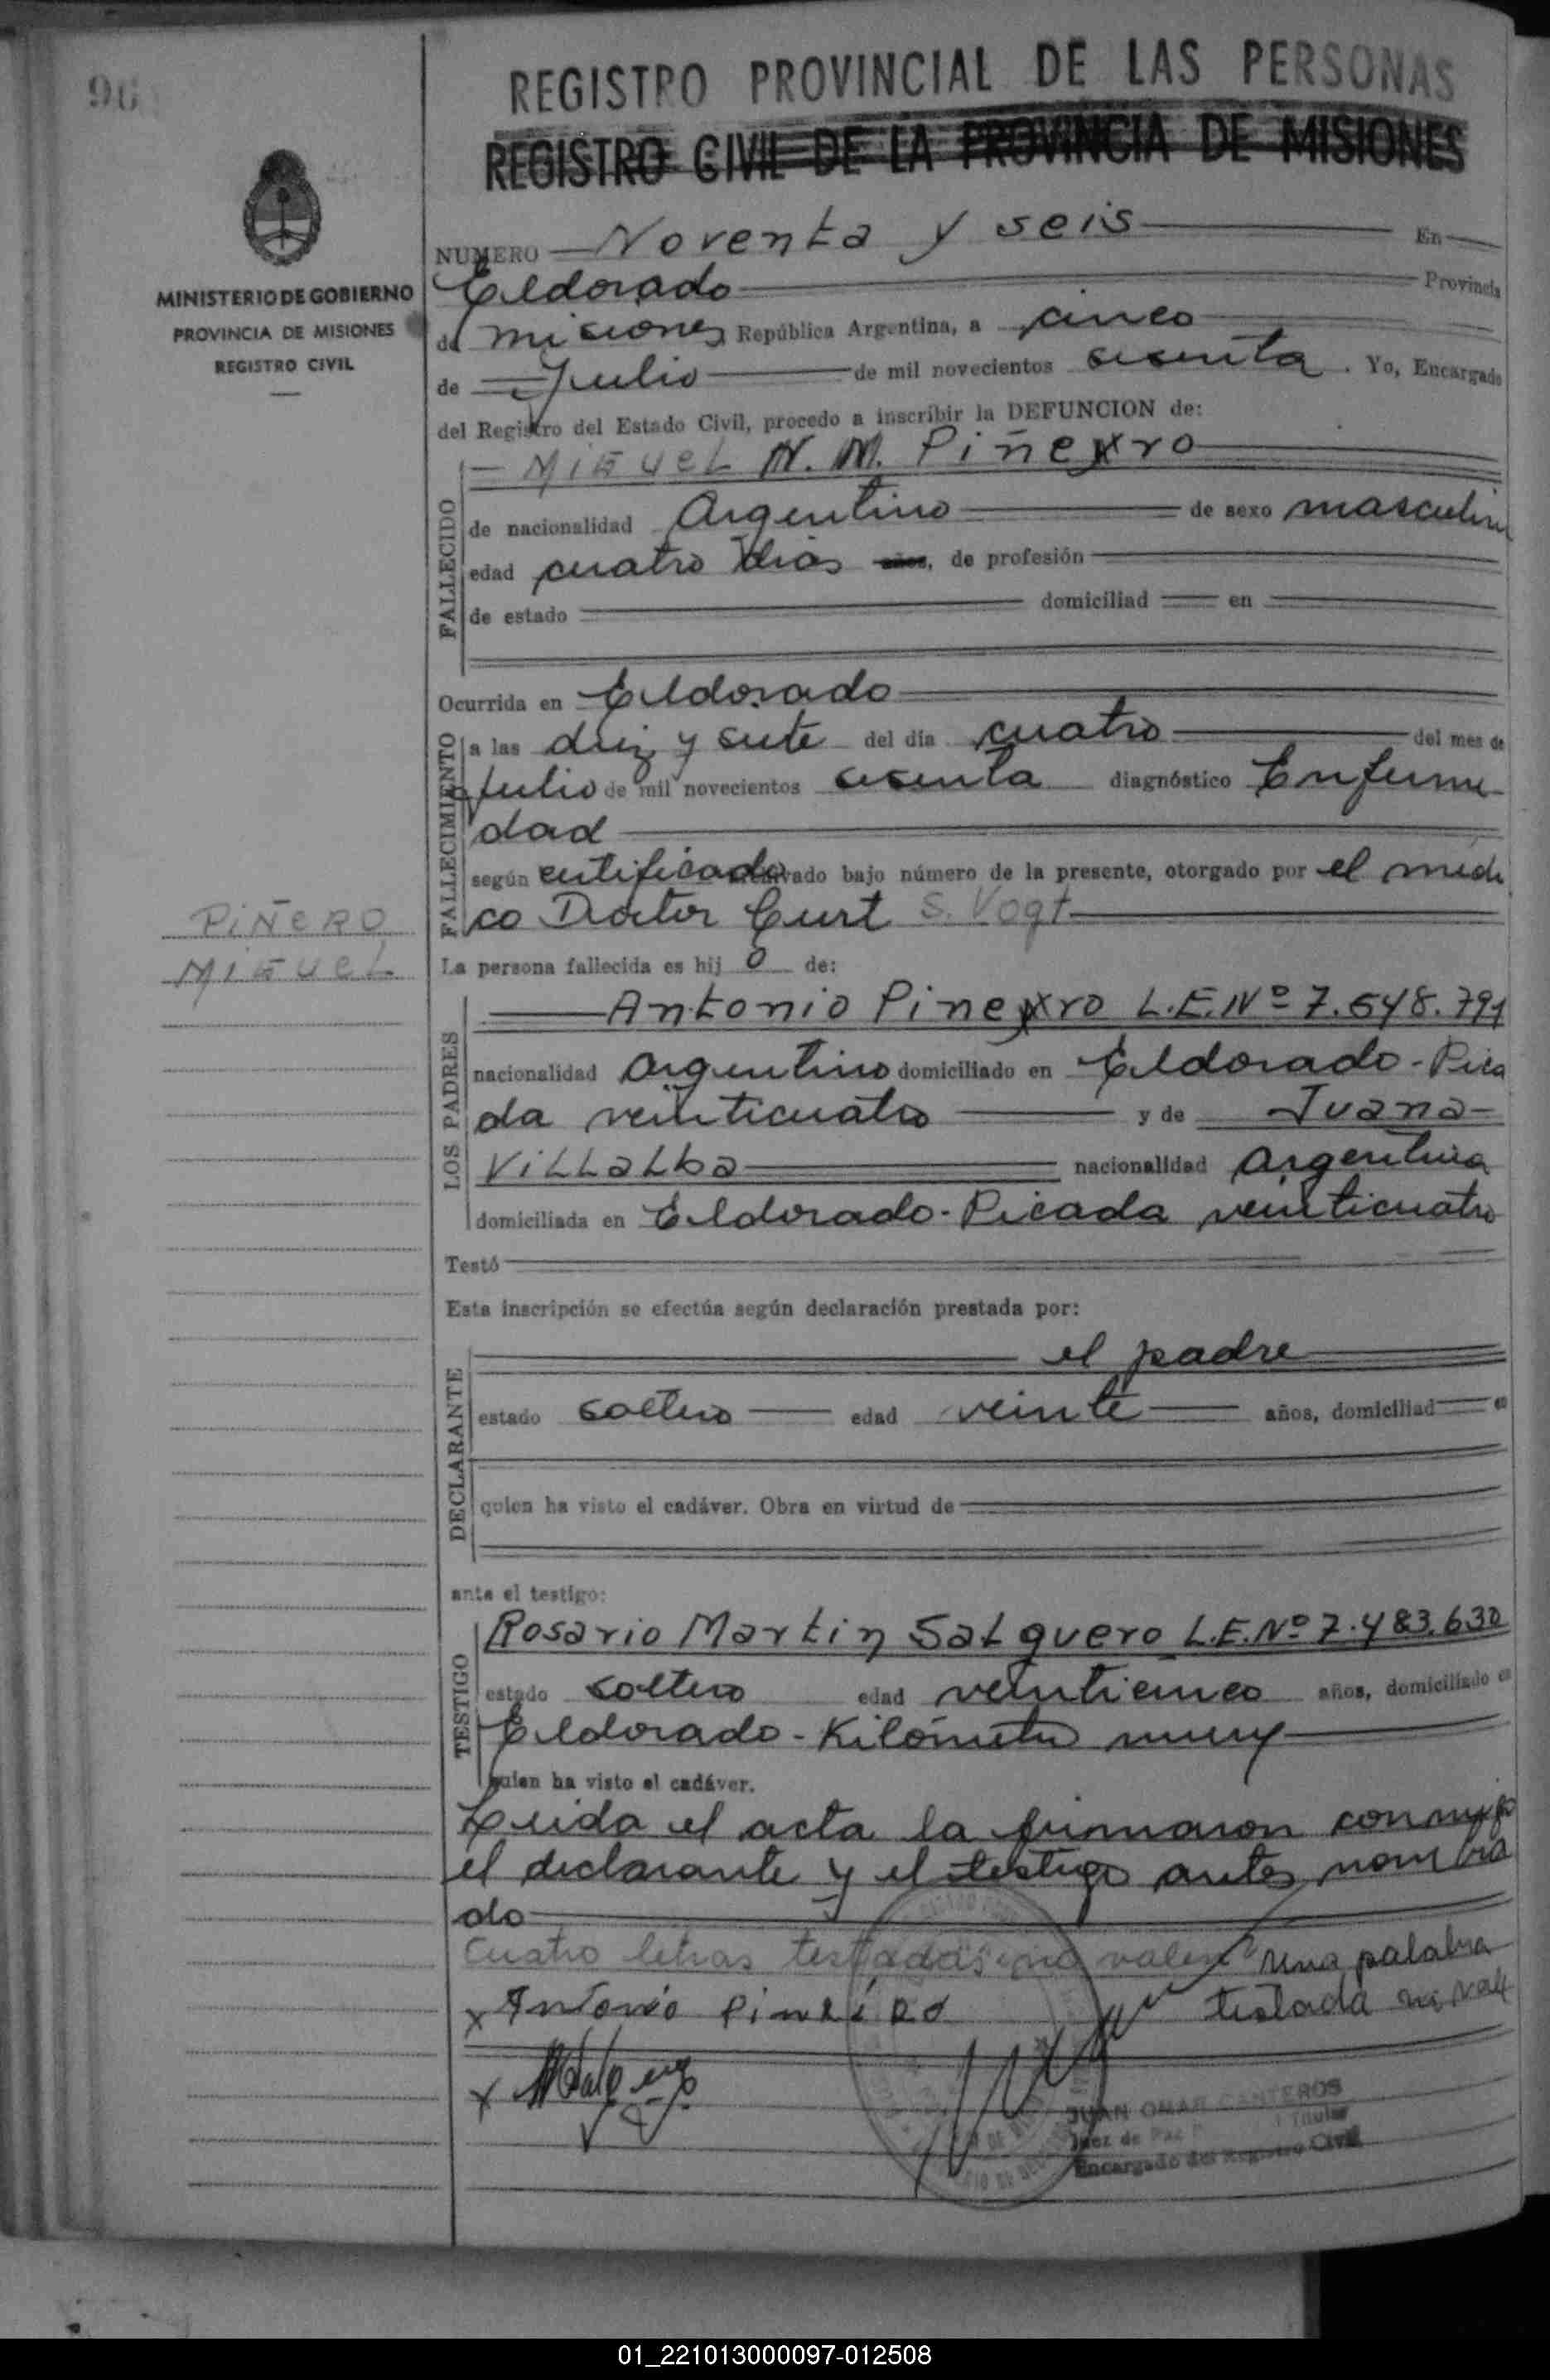 96
REGISTRO PROVINCIAL DE LAS PERSONAS
REGISTRO CIVIL DE LA PROVINCIA DE MISIONES
MINISTERIO DE GOBIERNO
PROVINCIA DE MISIONES
REGISTRO CIVIL
NUMERO Noventa y seis En
Eldorado Provincia
de Misiones República Argentina, a cinco
de Julio de mil novecientos sesenta. Yo, Encargado
del Registro del Estado Civil, procedo a inscribir la DEFUNCION de:
FALLECIDO
MiGueL N. M. Piñexro
de nacionalidad Argentino de sexo masculino
edad cuatro días años, de profesión
de estado domiciliad en
Ocurrida en Eldorado
FALLECIMIENTO
a las diez y siete del día cuatro del mes de
Julio de mil novecientos sesenta diagnóstico Enferme
dad
según certificado archivado bajo número de la presente, otorgado por el médi
co Doctor Curt S. Vogt
PiÑeRO
MiGueL
La persona fallecida es hij o de:
LOS PADRES
Antonio Pinexro L.E.Nº 7.548.791
nacionalidad argentino domiciliado en Eldorado-Pica
da veinticuatro y de Juana
ViLLaLba nacionalidad argentina
domiciliada en Eldorado-Picada veinticuatro
Testó
Esta inscripción se efectúa según declaración prestada por:
DECLARANTE
el padre
estado soltero edad veinte años, domiciliad en
quien ha visto el cadáver. Obra en virtud de
ante el testigo:
TESTIGO
Rosario Martin Salguero L.E.Nº 7.483.632
estado soltero edad veinticinco años, domiciliado en
Eldorado-Kilómetro nueve
quien ha visto el cadáver.
Leída el acta la firmaron conmigo
el declarante y el testigo antes nombra
do
Cuatro letras testadas: no valen Una palabra
x Antonio Pineiro testada no vale
x
JUAN OMAR CANTEROS
Juez de Paz Titular
Encargado del Registro Civil
01_221013000097-012508